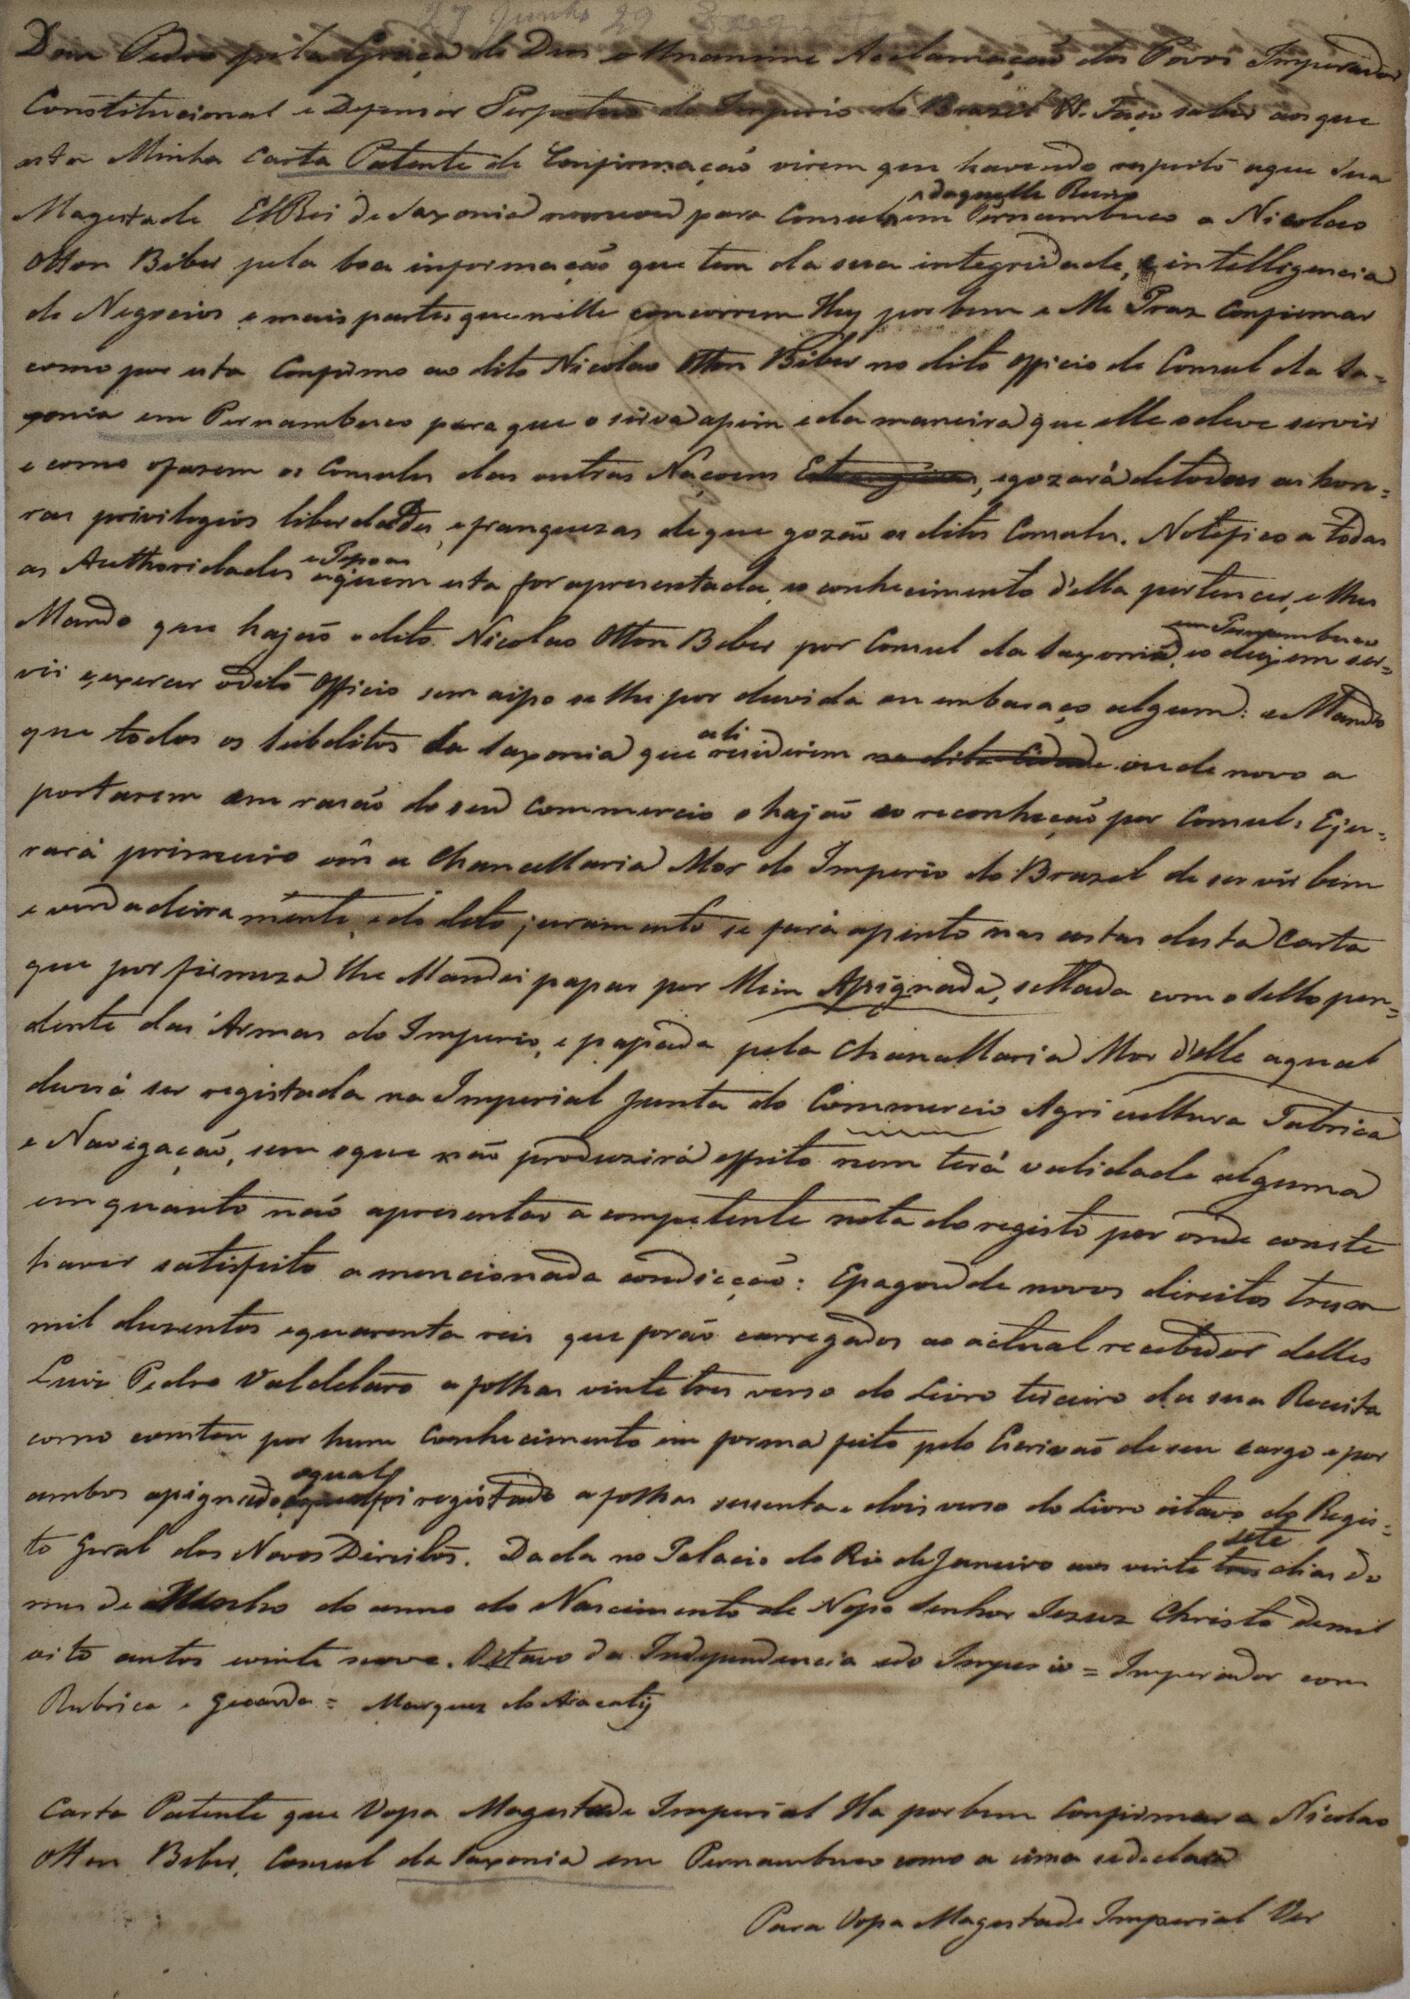 27 Junho 29
Dom Pedro pela Graça de Deos e Unanime Acclamação dos Povos Imperador
Constitucional e Defensor Perpetuo do Imperio do Brazil &. Faço saber aos que
esta Minha Carta Patente de Confirmação virem que havendo respeito aque Sua
Magestade ElRei de Saxonia nomeou para Consul daquelle Reino em Pernambuco a Nicolao
Otton Bieber pela boa informação que tem da sua integridade, e intelligencia
de Negocios e mais partes que nelle concorrem Hey por bem e Me Praz Confirmar
como por esta Confirmo ao dito Nicolao Otton Bieber no dito officio de Consul da Sa=
xonia em Pernambuco para que o sirva assim e da maneira que elle o deve servir
e como ofazem os Consules das outras Naçoens Estrangeiras, egozará detodas as hon=
ras privilegios liberdades, efranquezas deque gozão os ditos Consules. Notefico a todas
as Authoridades e Pessoas aquem esta for apresentada, eo conhecimento d'ella pertencer, e lhes
Mando que hajão odito Nicolao Otton Beber por Consul da Saxonia em Pernambuco, eo deixem ser=
vir eexercer odito Officio sem aisso se lhe por duvida ou embaraço algum: e Mando
que todos os Subditos da Saxonia que ali residirem na dita Cidade ou de novo a
portarem em rasão do seu Commercio o hajão eo reconheção por Consul: Eju=
rará primeiro em a Chancellaria Mor do Imperio do Brazil de servir bem
e verdadeiramente, e do dito juramento se fará assento nas costas desta Carta
que por firmeza lhe Mandei passar por Mim Assignada, sellada com o Sello pen=
dente das Armas do Imperio, e passada pela Chancellaria Mor d'elle aqual
deverá ser registada na Imperial Junta do Commercio Agricultura Fabrica
e Navegação, sem oque não produzirá effeito nem terá validade alguma
emquanto não apresentar a competente nota do registo por onde conste
haver satisfeito a mencionada condicção: Epagou de novos direitos treze
mil duzentos equarenta reis que forão carregados ao actual recebedor delles
Luiz Pedro a folhas vinte tres verso do Livro terceiro da sua Receita
como constou por hum Conhecimento em forma feito pelo Escrivão deseu cargo e por
ambos assignado, oqual foi registado a folhas sessenta e dois verso do Livro oitavo do Regis=
to Geral dos Novos Direitos. Dada no Palacio do Rio de Janeiro aos vinte tres sete dias do
mes de Junho do anno do Nascimento de Nosso Senhor Jezuz Christo demil
oito centos evinte nove. Oitavo da Independencia edo Imperio = Imperador com
Rubrica e Guarda = Marquez do Aracaty
Carta Patente que Vossa Magestade Imperial Ha por bem Confirmar a Nicolao
Otton Beber, Consul da Saxonia em Pernambuco como a cima se declara
Para Vossa Magestade Imperial Ver